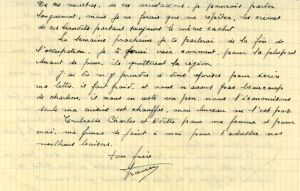 De ces meurtres, de ces arrestations, je pourrais parler
longuement, mais je ne ferais que me répéter, les crimes
de ces bandits portant toujours le même cachet
La semaine prochaine je parlerai de la fin de
l'occupation, je te ferai voir comment, pour la plupart
avant de fuir, ils quittèrent la région.
J'ai du m'y prendre à deux fois pour écrire
ma lettre, il fait froid, et nous n'avons pas beaucoup
de charbon, il nous en reste un peu, nous l'économisons
seule ma cuisine est chauffée, mon bureau ne l'est pas
Embrasse Charles et Odette pour ma femme et pour
moi. ma femme se joint à moi pour t'adresser nos
meilleurs baisers.
Ton frère